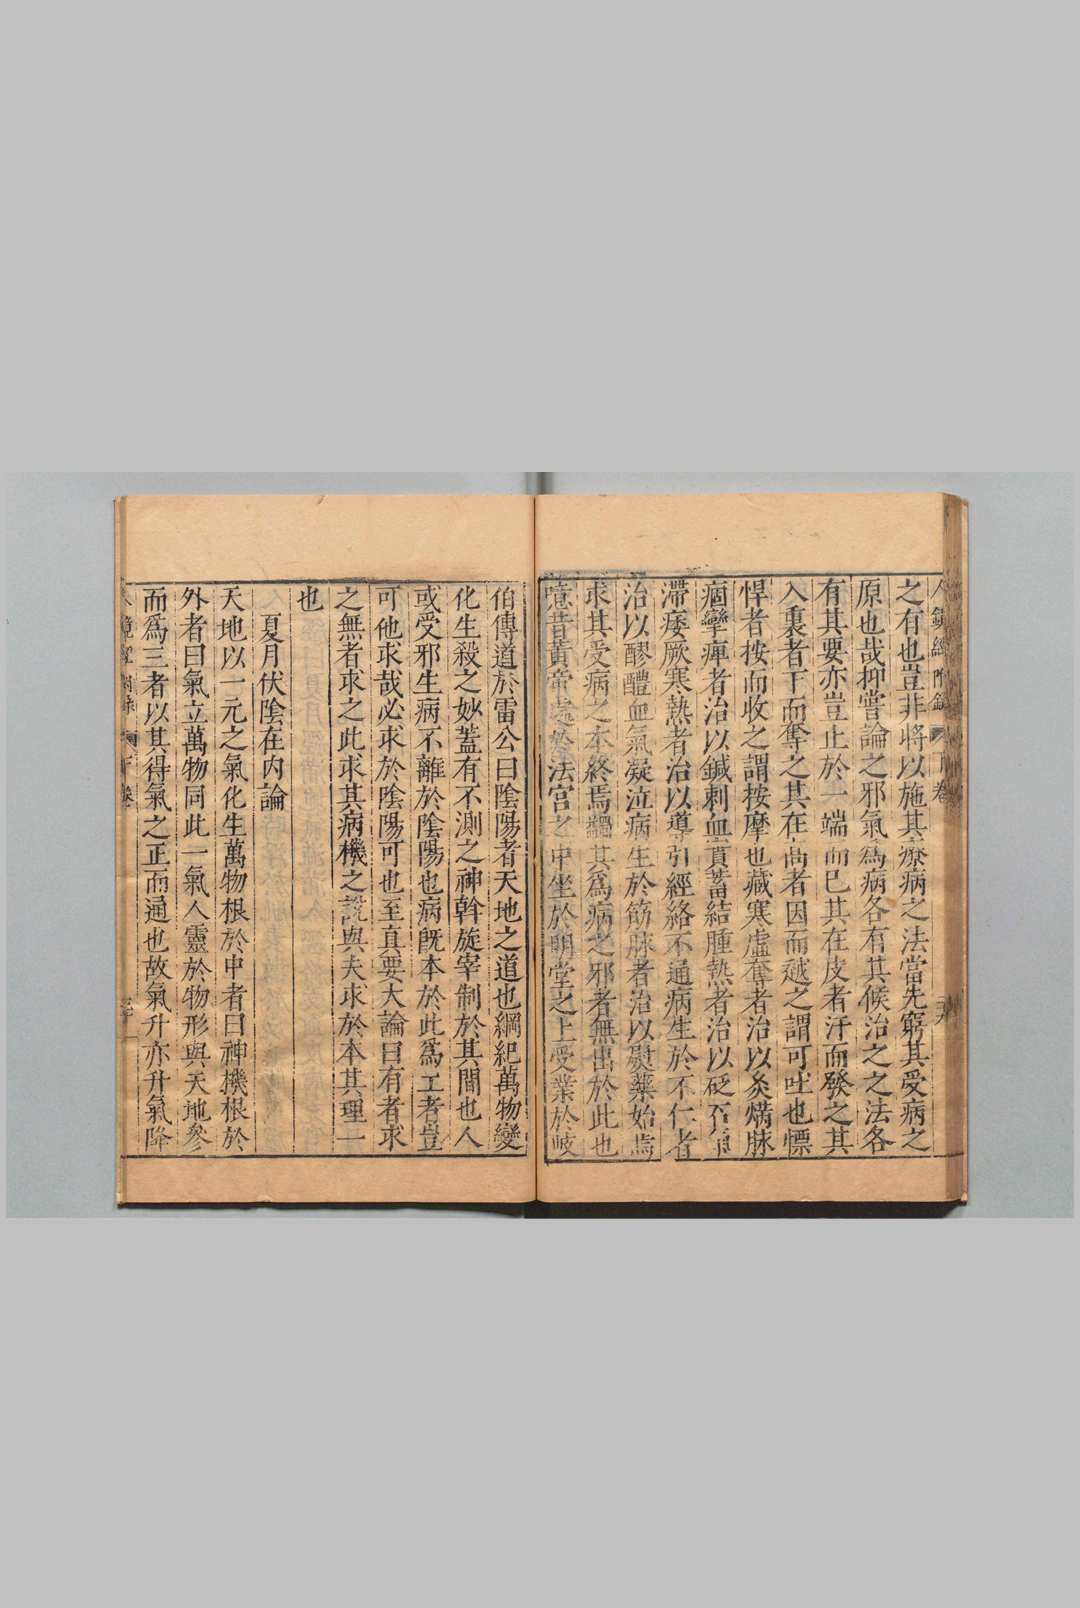 人鏡經附錄 下卷
之有也豈非將以施其療病之法當先窮其受病之
原也哉抑嘗論之邪氣爲病各有其候治之之法各
有其要亦豈止於一端而已其在皮者汗而發之其
入裏者下而奪之其在高者因而越之謂可吐也慓
悍者按而收之謂按摩也藏寒虛奪者治以灸焫脉
痼攣痺者治以鍼刺血實蓄結腫熱者治以砭石氣
滯痿厥寒熱者治以導引經絡不通病生於不仁者
治以醪醴血氣凝泣病生於筋脉者治以熨藥始焉
求其受病之本終焉蠲其爲病之邪者無出於此也
噫昔黃帝處於法宮之中坐於明堂之上受業於岐
伯傳道於雷公曰陰陽者天地之道也綱紀萬物變
化生殺之妙蓋有不測之神斡旋宰制於其間也人
或受邪生病不離於陰陽也病既本於此爲工者豈
可他求哉必求於陰陽可也至真要大論曰有者求
之無者求之此求其病機之說與夫求於本其理一
也
夏月伏陰在內論
天地以一元之氣化生萬物根於中者曰神機根於
外者曰氣立萬物同此一氣人靈於物形與天地參
而爲三者以其得氣之正而通也故氣升亦升氣降
人鏡經附錄 下卷